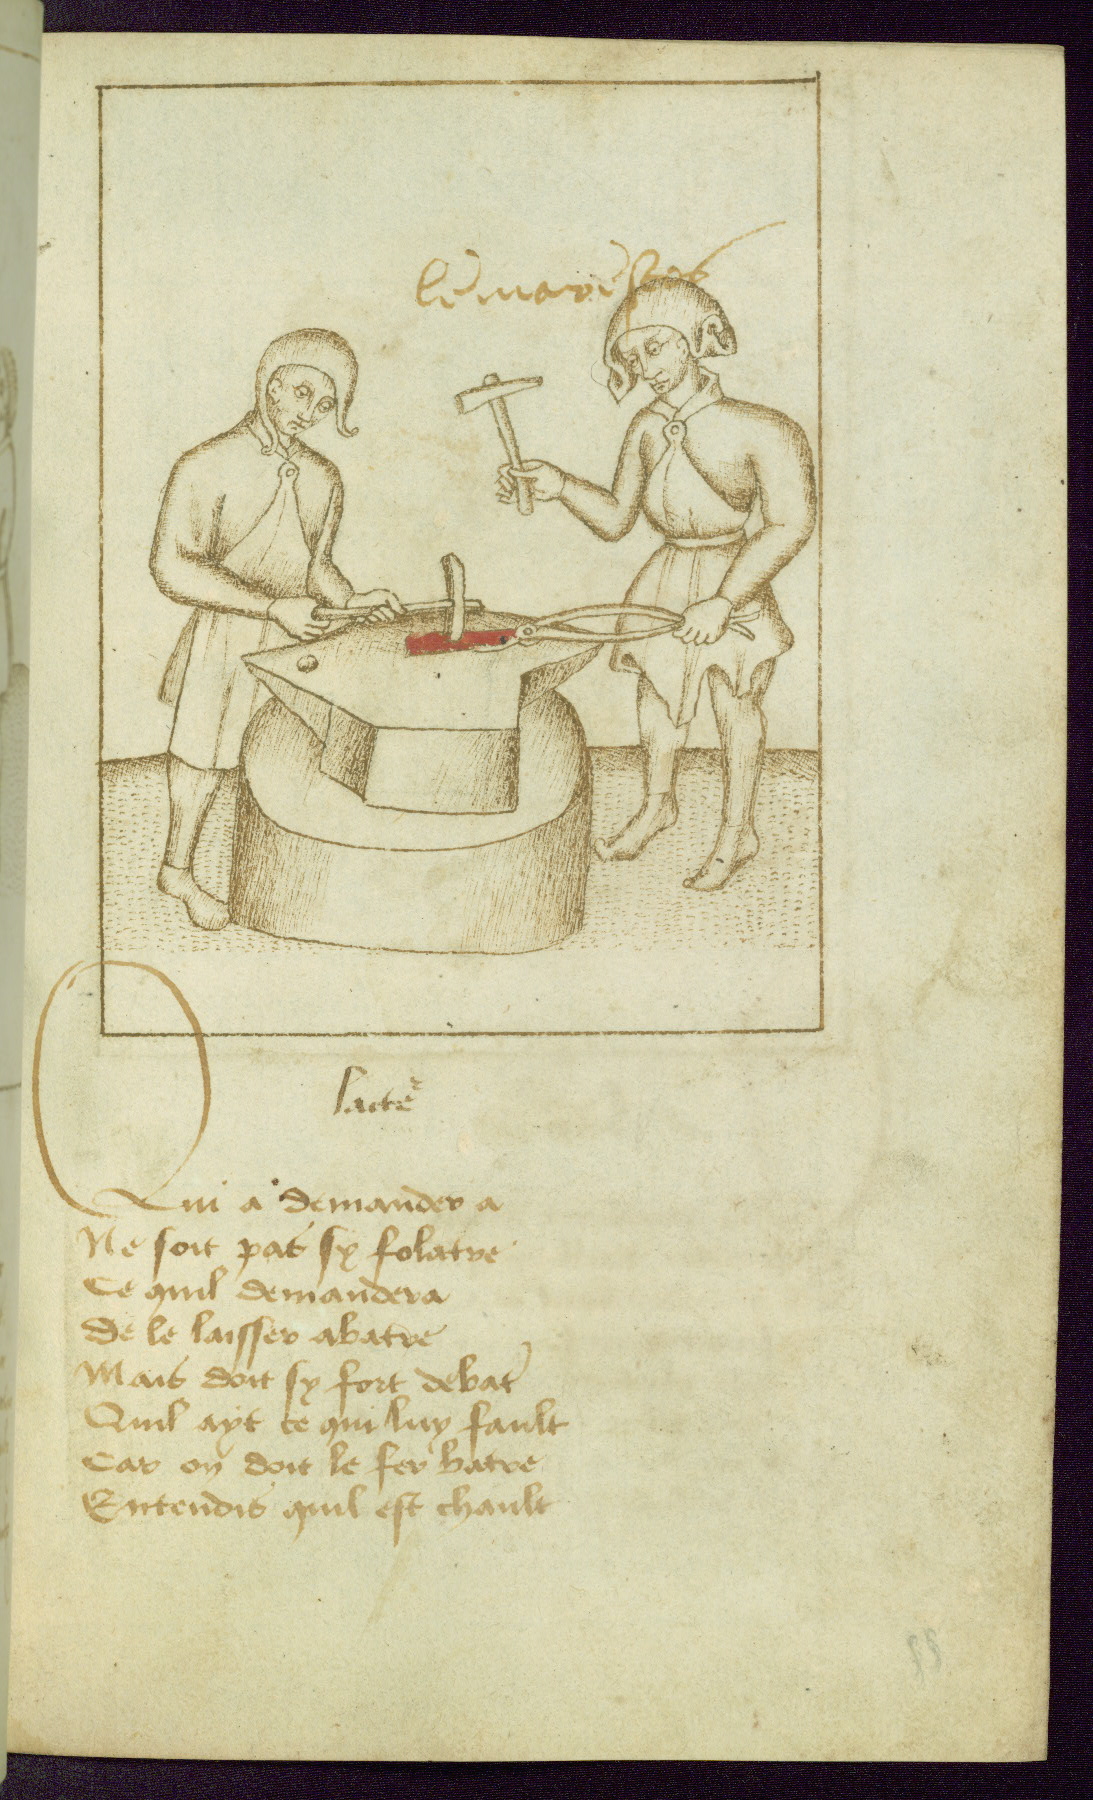 le mareschal
lacteur
Qui a demander a
Ne soit pas sy folatre
Ce quil demandera
De le laisser abatre
Mais doit sy fort debatr
Quil ayt ce qui luy fault
Car on doit le fer batre
Entendis quil est chault